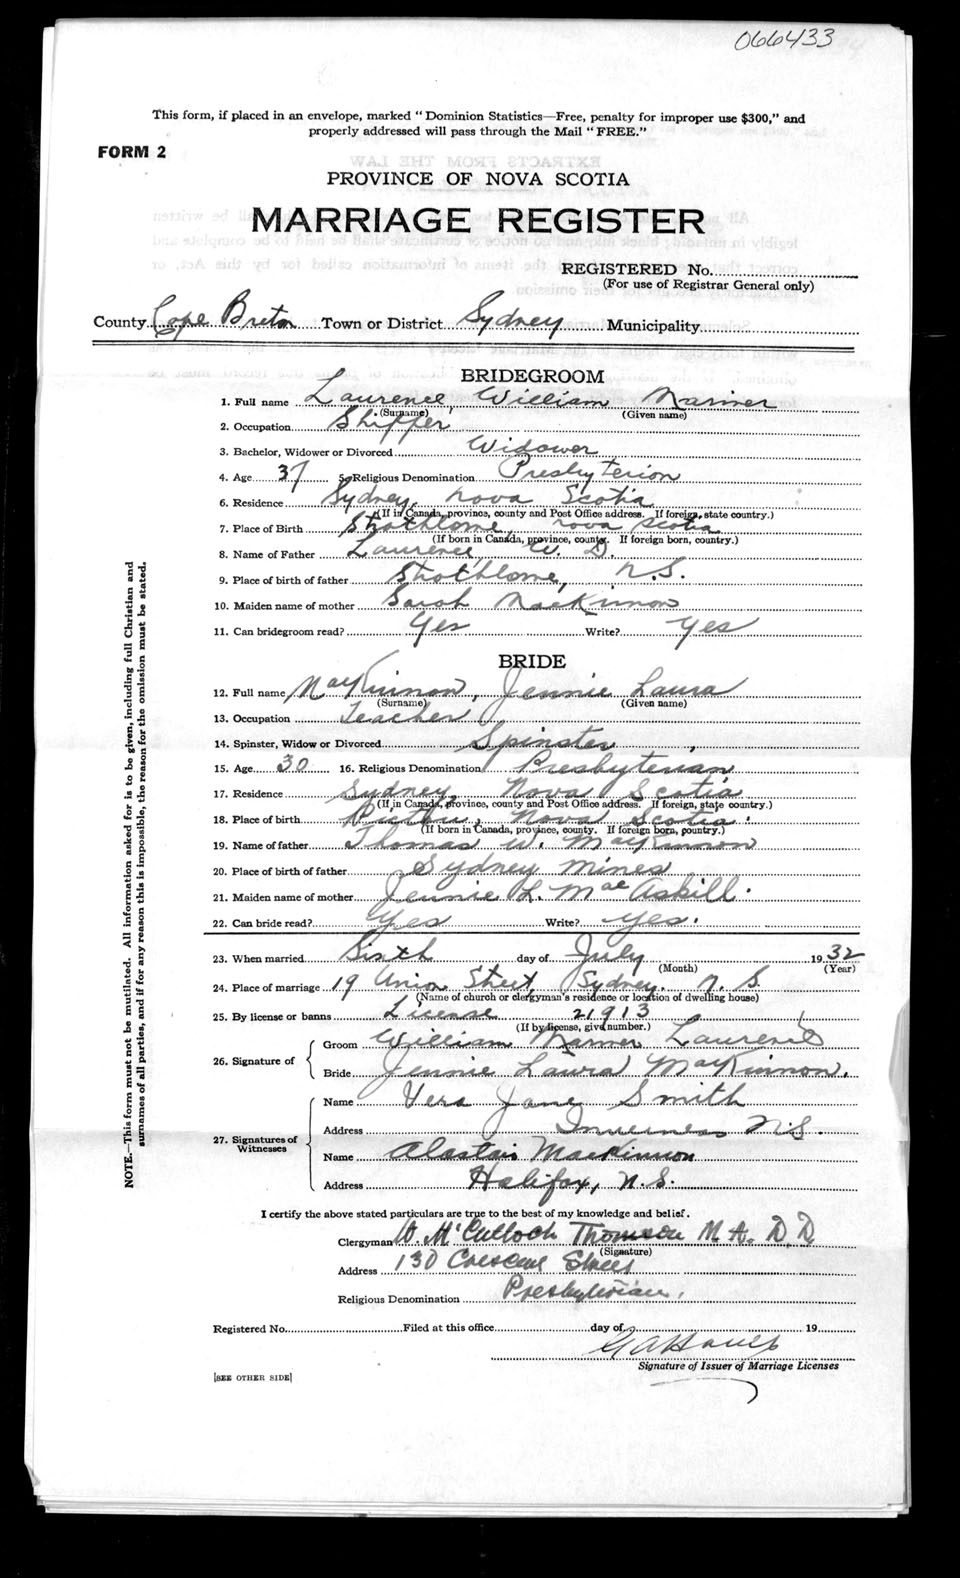 066433
This form, if placed in an envelope, marked "Dominion Statistics—Free, penalty for improper use $300," and
properly addressed will pass through the Mail "FREE."
FORM 2
PROVINCE OF NOVA SCOTIA
MARRIAGE REGISTER
REGISTERED No.
(For use of Registrar General only)
County Cape Breton Town or District Sydney Municipality
BRIDEGROOM
1. Full name Laurence, William Narmer
(Surname) (Given name)
2. Occupation Shipper
3. Bachelor, Widower or Divorced Widower
4. Age 37 5. Religious Denomination Presbyterion
6. Residence Sydney, Nova Scotia
(If in Canada, province, county and Post Office address. If foreign, state country.)
7. Place of Birth Strathlorne, Nova Scotia
(If born in Canada, province, county. If foreign born, country.)
8. Name of Father Laurence, W. D.
9. Place of birth of father Strathlorne, N.S.
10. Maiden name of mother Sarah MacKinnon
11. Can bridegroom read? Yes Write? Yes
BRIDE
12. Full name MacKinnon, Jennie Laura
(Surname) (Given name)
13. Occupation Teacher
14. Spinster, Widow or Divorced Spinster
15. Age 30 16. Religious Denomination Presbyterian
17. Residence Sydney Nova Scotia
(If in Canada, province, county and Post Office address. If foreign, state country.)
18. Place of birth Pictou, Nova Scotia.
(If born in Canada, province, county. If foreign born, country.)
19. Name of father Thomas W. MacKinnon
20. Place of birth of father Sydney Mines
21. Maiden name of mother Jennie L. MacAskill.
22. Can bride read? Yes Write? Yes.
23. When married Sixth day of July 1932
(Month) (Year)
24. Place of marriage 19 Union Street, Sydney. N. S.
(Name of church or clergyman's residence or location of dwelling house)
25. By license or banns License 21913
(If by license, give number.)
26. Signature of
Groom William Narmer Laurence
Bride Jennie Laura MacKinnon.
27. Signatures of Witnesses
Name Vera Jane Smith
Address Inverness N.S.
Name Alastair MacKinnon
Address Halifax, N.S.
I certify the above stated particulars are true to the best of my knowledge and belief.
Clergyman W. McCulloch Thomson M.A. D.D.
(Signature)
Address 130 Crescent Street
Religious Denomination Presbyterian.
Registered No. Filed at this office day of 19
Signature of Issuer of Marriage Licenses
[SEE OTHER SIDE]
NOTE.—This form must not be mutilated. All information asked for is to be given, including full Christian and
surnames of all parties, and if for any reason this is impossible, the reason for the omission must be stated.